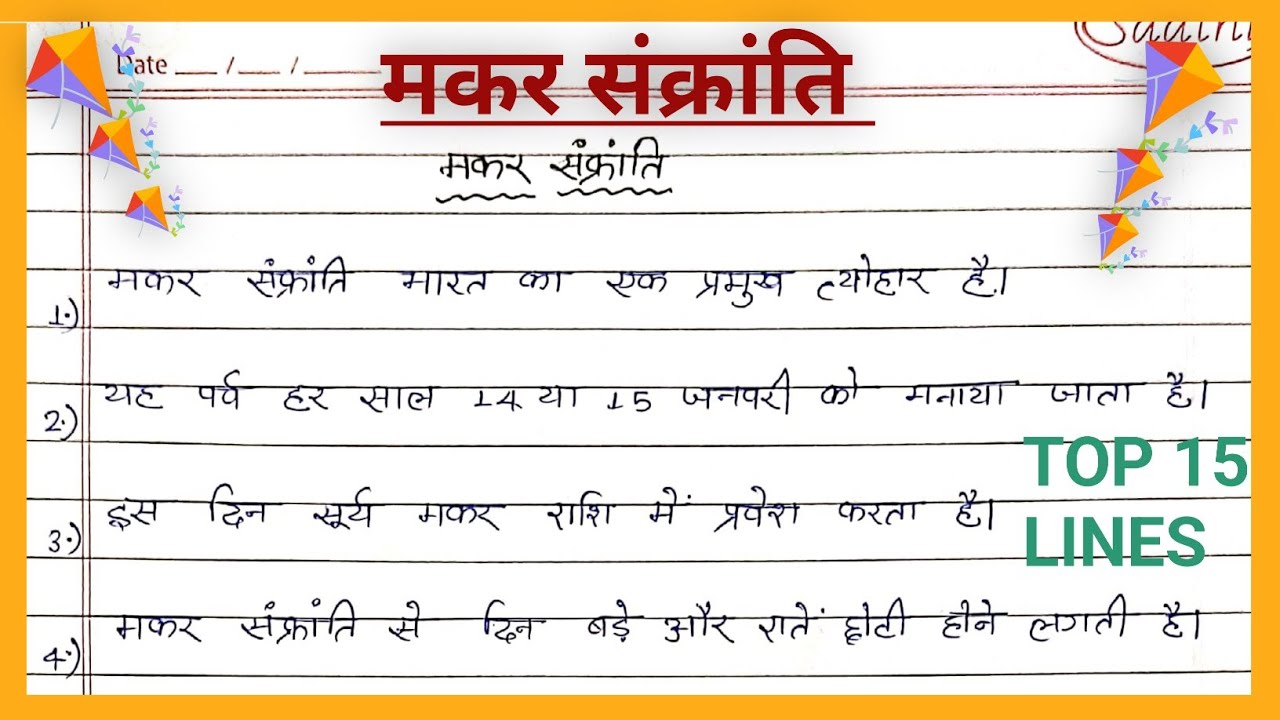 Date __/__/____
मकर संक्रांति
मकर संक्रांति
1.) मकर संक्रांति भारत का एक प्रमुख त्योहार है।
2.) यह पर्व हर साल 14 या 15 जनवरी को मनाया जाता है।
TOP 15
LINES
3.) इस दिन सूर्य मकर राशि में प्रवेश करता है।
4.) मकर संक्रांति से दिन बड़े और रातें छोटी होने लगती है।